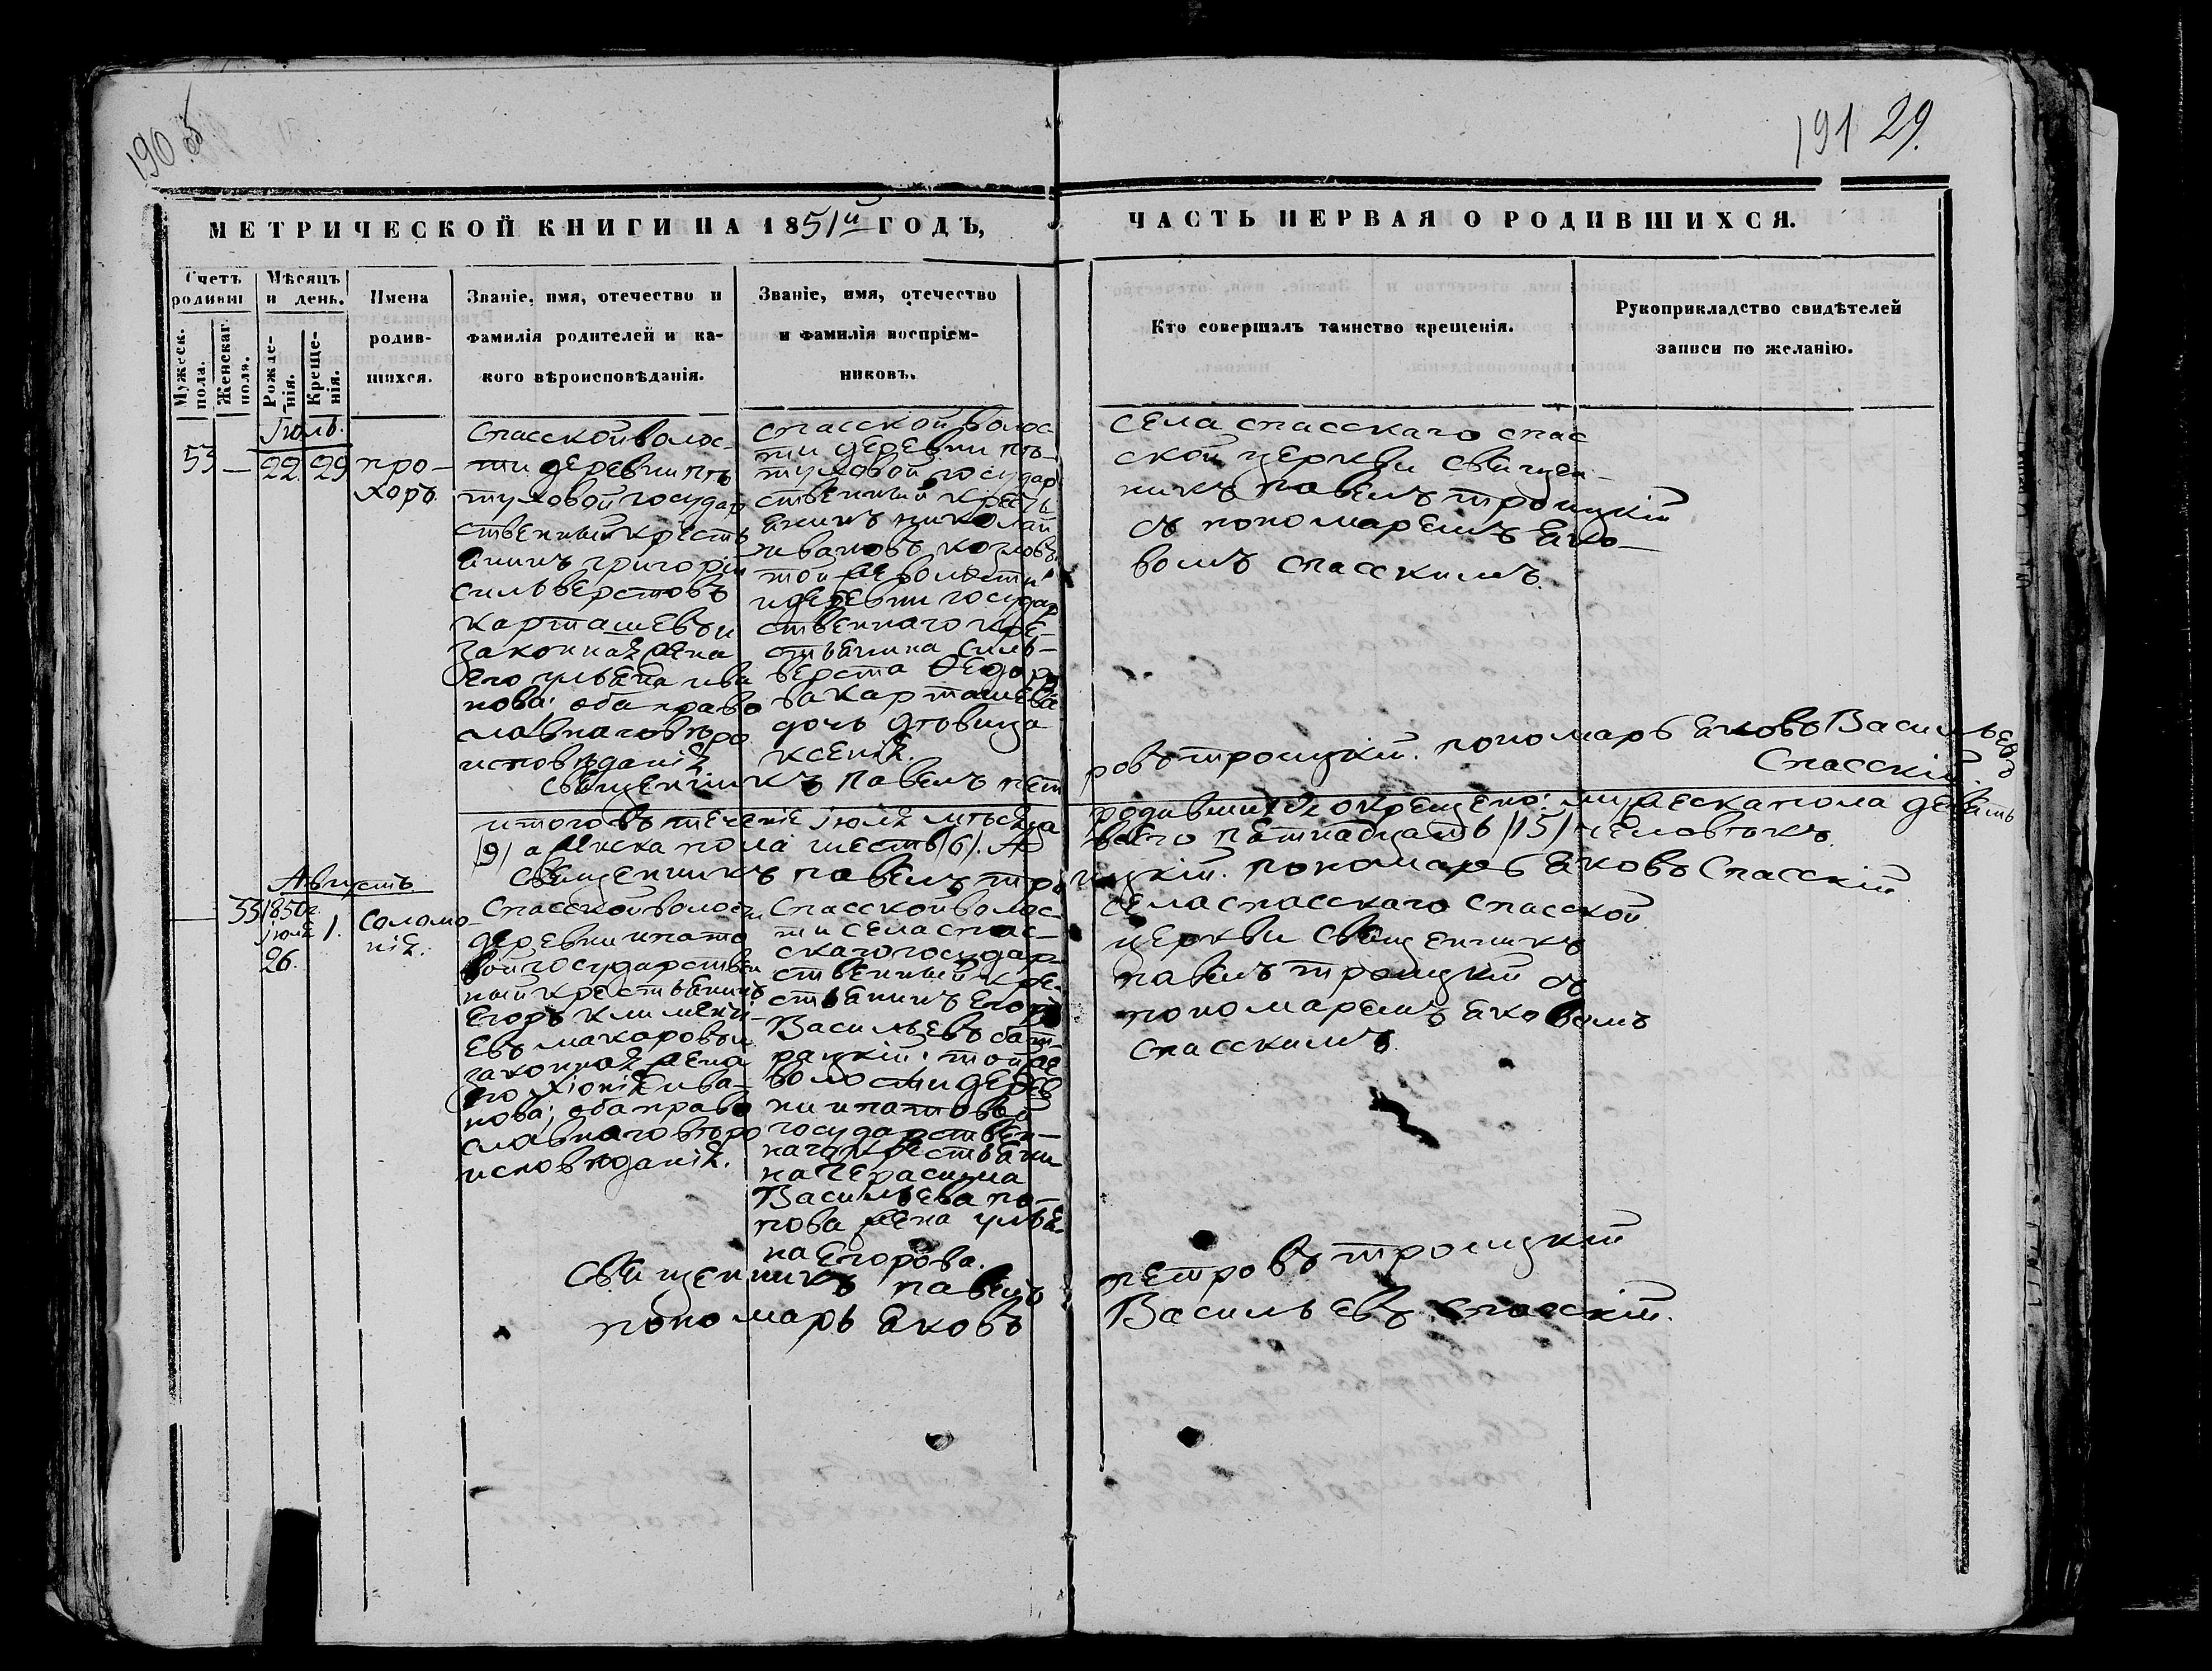 190 об
191 29.
МЕТРИЧЕСКОЙ КНИГИ НА 1851й ГОДЪ,
ЧАСТЬ ПЕРВАЯ О РОДИВШИХСЯ.
Счетъ родивш
Мужеск. пола.
Женскаг. пола.
Мѣсяцъ и день.
Рожде-
нія.
Креще-
нія.
Имена
родив-
шихся.
Званіе, имя, отечество и
фамилія родителей и ка-
кого вѣроисповѣданія.
Званіе, имя, отечество
и фамилія воспріем-
никовъ.
Кто совершалъ таинство крещенія.
Рукоприкладство свидѣтелей
записи по желанію.
Іюль.
53 — 22. 29
про-
хоръ.
Спасской волос-
ти деревни пѣ
туховой государ
ственный кресть
янинъ григорій
сильверстовъ
карташевъ и
законная жена
его ульяна ива
нова; оба право
славнаго вѣро
исповѣданія
спасской волос
ти деревни пѣ-
туховой государ
ственный кресть
янинъ николай
ивановъ козловъ
той же волости
и деревни государ
ственнаго кре-
стьянина силь-
верста Ѳедоро
ва карташева
дочь дѣвица
ксенія.
села спасскаго спас
ской церкви священ-
никъ павелъ троицкій
съ пономаремъ яко-
вомъ спасскимъ.
священникъ павелъ пет
ровъ троицкій. пономарь яковъ Васильевъ
Спасскій.
итого въ теченіе іюля мѣсяца
родившихся окрещено: мужеска пола девять
/9/ а женска пола шесть /6/. А
всего пятнадцать /15/ человѣкъ.
священникъ павелъ тро
ицкій. пономарь яковъ Спасскій
Августъ
55
1850г.
іюля
26.
1.
Соломо-
нія.
Спасской волости
деревни ипато
вой государствен
ный крестьянинъ
Егоръ климентi-
евъ макаровъ и
законная жена
его хіонія ива-
нова; оба право
славнаго вѣро
исповѣданія.
Спасской волос-
ти села спас-
скаго государ-
ственный кре-
стьянинъ Егоръ
Васильевъ бат-
рацкій; той же
волости дерев
ни ипатовой
государствен-
наго крестьяни-
на Герасима
Васильева по-
пова жена улья-
на Егорова.
села спасскаго спасской
церкви священникъ
павелъ троицкій съ
пономаремъ яковомъ
спасскимъ.
Священникъ павелъ
петровъ троицкій
пономарь яковъ
Васильевъ спасскій.